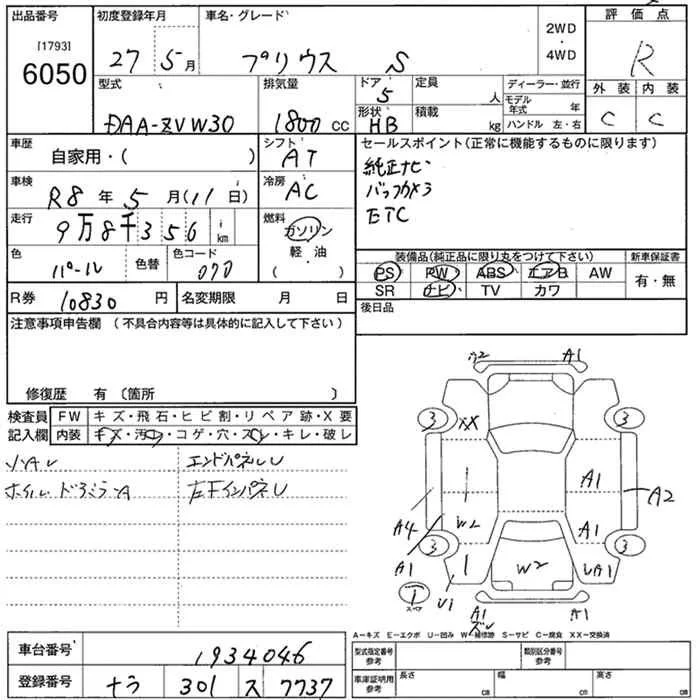 出品番号 初度登録年月 車名・グレード 2WD 4WD 評価点
[1793]
6050 27 5月 プリウス S R
型式 排気量 ドア 5 定員 人 ディーラー・並行 外装 内装
モデル年式 年
DAA-ZVW30 1800cc 形状 HB 積載 kg ハンドル 左・右 C C
車歴 自家用・( ) シフト AT セールスポイント(正常に機能するものに限ります)
純正ナビ
車検 R8年5月(11日) 冷房 AC バックカメラ
ETC
走行 9万8千356km 燃料 ガソリン
軽・油
( )
色 パール 色替 色コード 070 装備品(純正品に限り丸をつけて下さい) 新車保証書
PS PW ABS エアB AW 有・無
R券 10830円 名変期限 月 日 SR ナビ TV カワ
注意事項申告欄(不具合内容等は具体的に記入して下さい) 後日品
修復歴 有(箇所 )
検査員 FW キズ・飛石・ヒビ割・リペア跡・X要
記入欄 内装 キズ・汚・コゲ・穴・スレ・キレ・破レ
エンドパネルU
左Fインパネ U
A2 A1
3 XX 3
A1 A2
A4 W2 A1
3 3
A1 W2 A1
U1
1 スペア
A1 A1
A-キズ E-エクボ U-凹み W-補修跡 S-サビ C-腐食 XX-交換済
車台番号 1934046 型式指定番号 参考 類別区分番号 参考
登録番号 ナラ 301 ス 7737 車庫証明用 参考 長さ cm 幅 cm 高さ cm